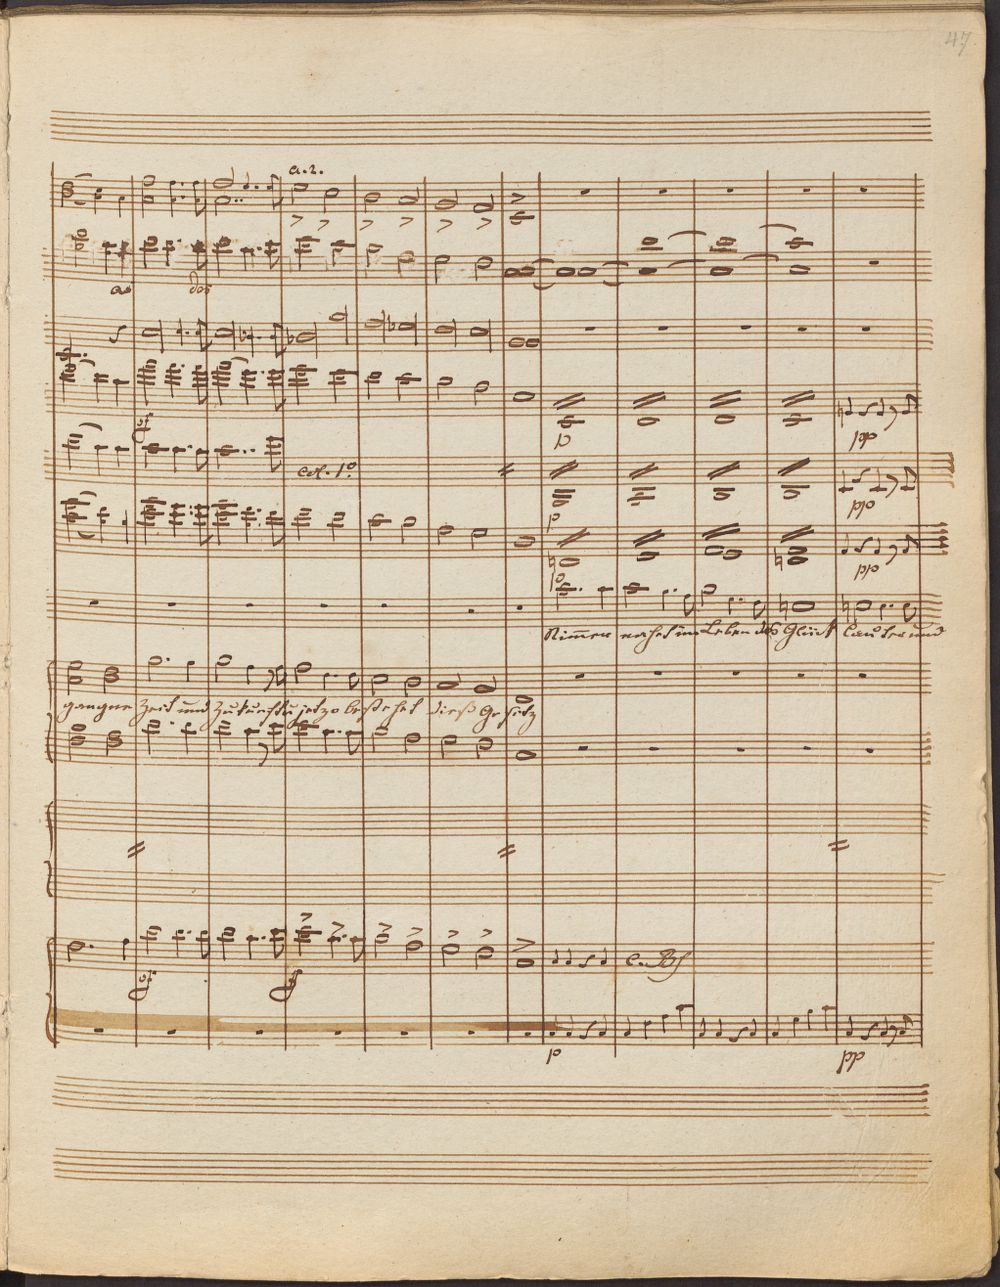 47
a. 2.
sf
col. 1º
p
pp
p
pp
p
pp
Nimmer nahet im Leben das Glück lauter und
gangne Zeit und Zukunft zu jetzo bestehet dieß Gesetz
sf
sf
c. Bß
p
pp